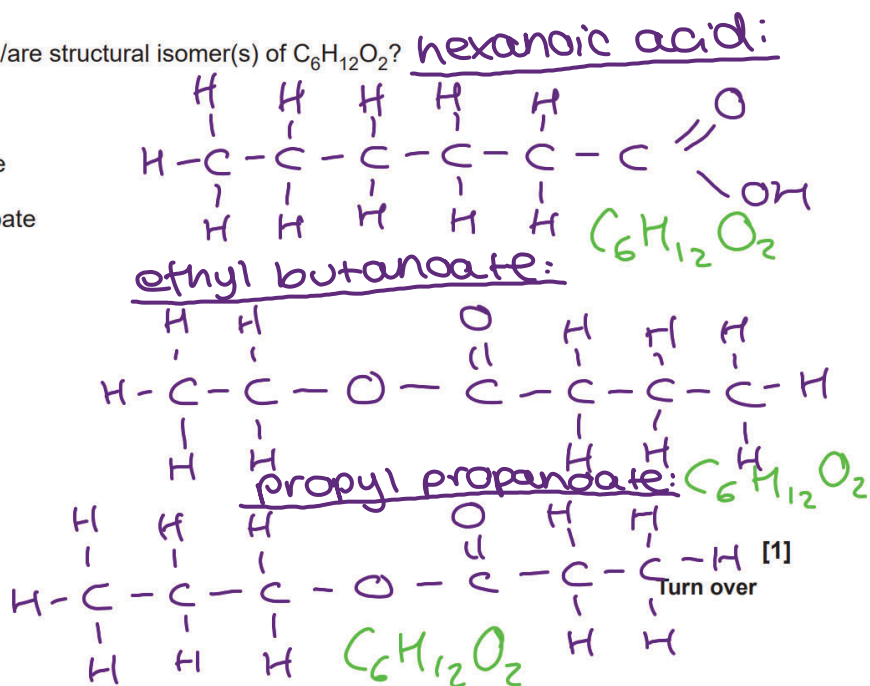 /are structural isomer(s) of C₆H₁₂O₂? hexanoic acid:
H H H H H O
H – C – C – C – C – C – C
e
OH
ate
H H H H H C₆H₁₂O₂
ethyl butanoate:
H H O H H H
H – C – C – O – C – C – C – C – H
H H H H H
propyl propanoate: C₆H₁₂O₂
H H H O H H
H – C – C – C – O – C – C – C – H [1]
Turn over
H H H C₆H₁₂O₂ H H